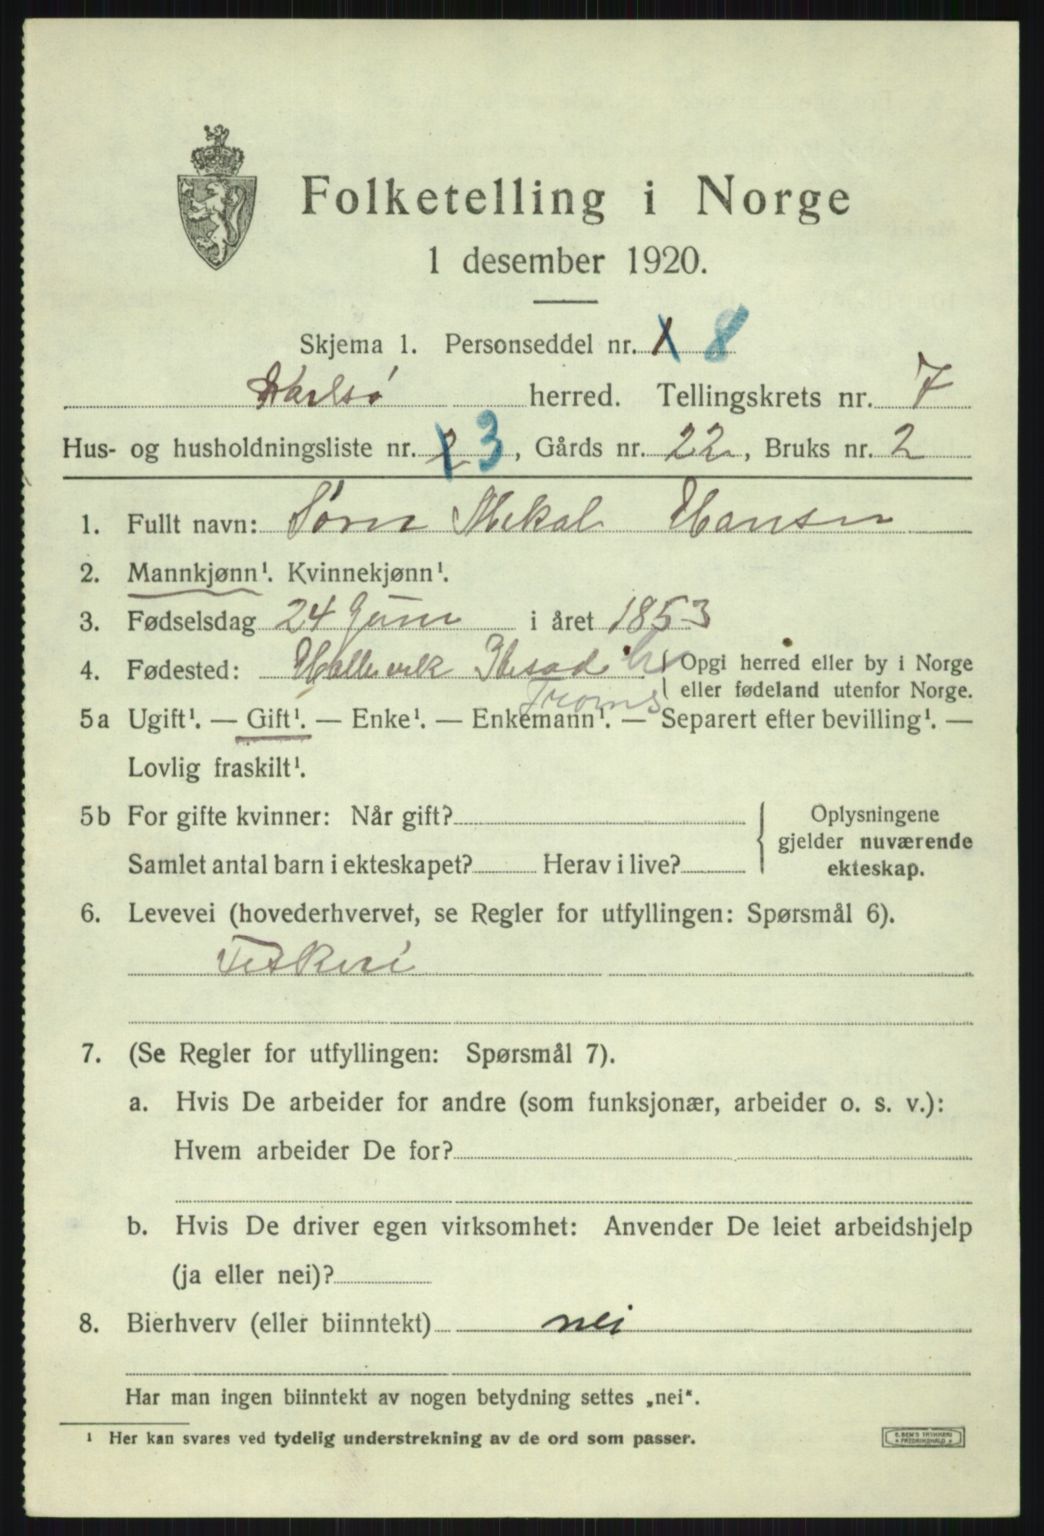 Folketelling i Norge
1 desember 1920.
Skjema 1. Personseddel nr. 1 8
Karlsø herred. Tellingskrets nr. 7
Hus- og husholdningsliste nr. 2 3, Gårds nr. 22, Bruks nr. 2
1. Fullt navn: Søren Mekal Hansen
2. Mannkjønn¹. Kvinnekjønn¹.
3. Fødselsdag 24 Juni i året 1853
4. Fødested: Hallevik Ibestad h (Opgi herred eller by i Norge
eller fødeland utenfor Norge.
Troms
5a Ugift¹. — Gift¹. — Enke¹. — Enkemann¹. — Separert efter bevilling¹. —
Lovlig fraskilt¹.
5b For gifte kvinner: Når gift?
Samlet antal barn i ekteskapet? Herav i live?
Oplysningene
gjelder nuværende
ekteskap.
6. Levevei (hovederhvervet, se Regler for utfyllingen: Spørsmål 6).
Fiskeri
7. (Se Regler for utfyllingen: Spørsmål 7).
a. Hvis De arbeider for andre (som funksjonær, arbeider o. s. v.):
Hvem arbeider De for?
b. Hvis De driver egen virksomhet: Anvender De leiet arbeidshjelp
(ja eller nei)?
8. Bierhverv (eller biinntekt) nei
Har man ingen biinntekt av nogen betydning settes „nei“.
¹ Her kan svares ved tydelig understrekning av de ord som passer.